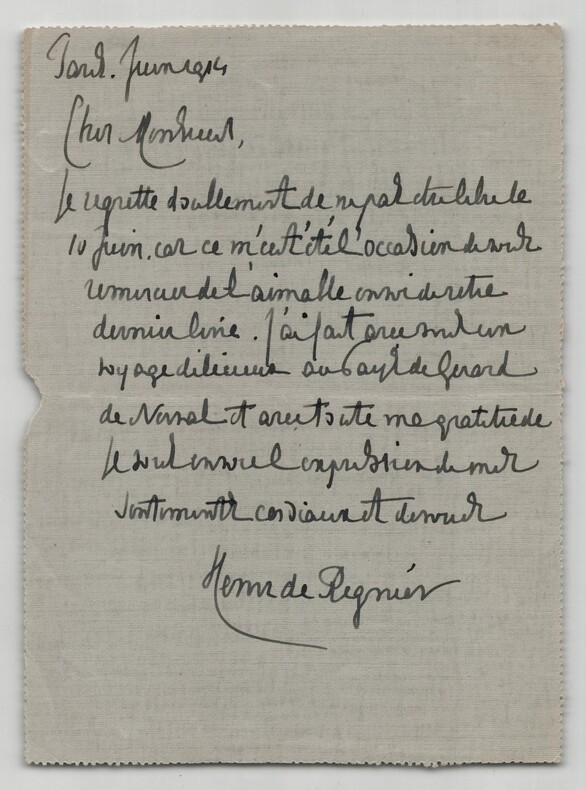 Paris. Juin 1914
Cher Monsieur,
Je regrette doublement de ne pas être libre le
10 juin, car ce m'eut été l'occasion de vous
remercier de l'aimable envoi de votre
dernier livre. J'ai fait avec vous un
voyage délicieux au Pays de Gérard
de Nerval et avec toute ma gratitude
je vous envoie l'expression de mes
sentiments cordiaux et dévoués
Henri de Régnier